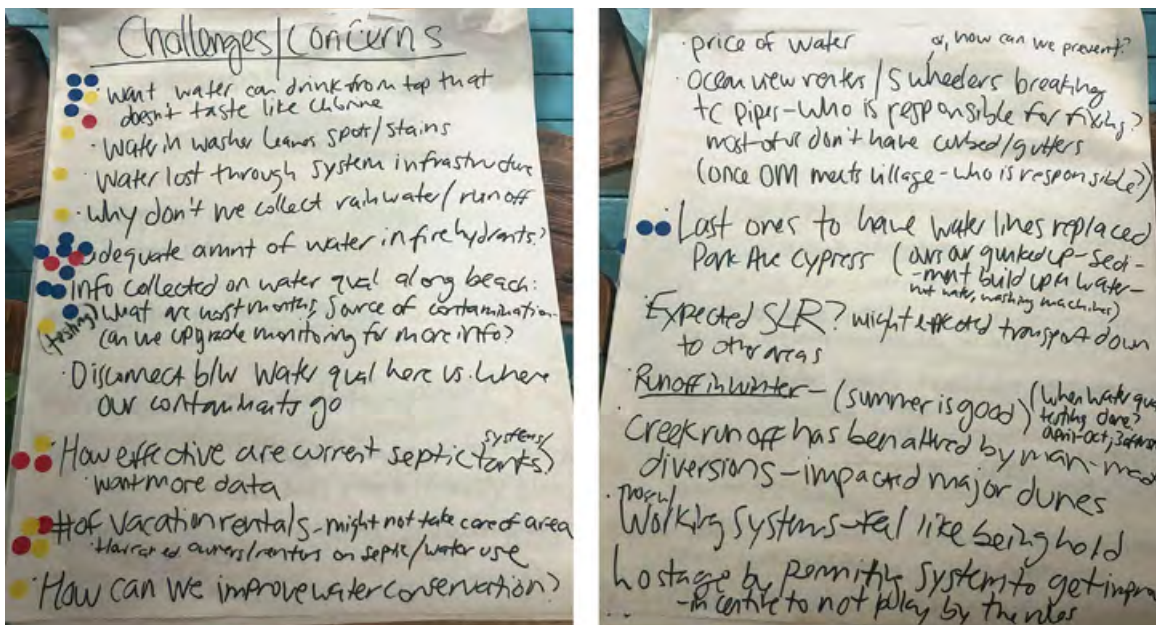 Challenges/Concerns
· Want water can drink from tap that
doesn't taste like chlorine
· Water in washer leaves spots/stains
· Water lost through system infrastructure
· Why don't we collect rainwater/runoff
adequate amnt of water in fire hydrants?
Info collected on water qual along beach:
(testing) What are worst months, source of contamination
can we upgrade monitoring for more info?
· Disconnect b/w water qual here vs. where
our contaminants go
systems/
· How effective are current septic tanks?
· want more data
# of vacation rentals - might not take care of area
owners/renters on septic/water use
· How can we improve water conservation?
· price of water
or, how can we prevent?
· Ocean view renters/5 wheelers breaking
pipes - who is responsible for fixing?
most of us don't have curbed/gutters
(once OM meets village - who is responsible?)
· Last ones to have water lines replaced
Park Ave Cypress (ours are gunked up - sedi-
-ment build up in water-
water, washing machines)
· Expected SLR? might effected transport down
to other areas
· Runoff in winter - (summer is good)
(When water qua
testing done?
april-oct,
· Creek run off has ben altred by man-mad
diversions - impacted major dunes
· Working systems - feel like being hold
hostage by permiting system to get impro
- incentive to not play by the rules